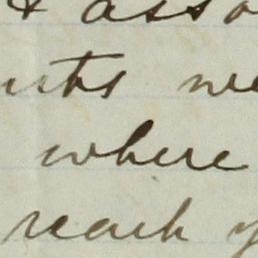 & asso
ists we
where
reach y